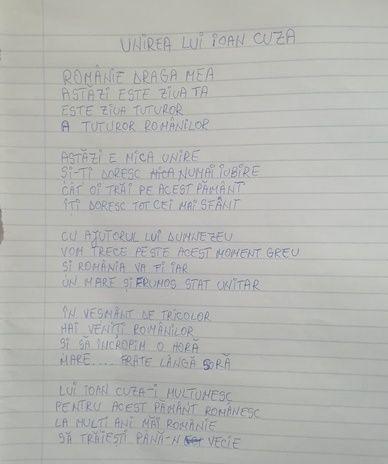 UNIREA LUI IOAN CUZA
ROMÂNIE DRAGA MEA
ASTĂZI ESTE ZIUA TA
ESTE ZIUA TUTUROR
A TUTUROR ROMÂNILOR
ASTĂZI E MICA UNIRE
ȘI-ȚI DORESC NUMAI IUBIRE
CÂT OI TRĂI PE ACEST PĂMÂNT
ÎȚI DORESC TOT CEI MAI SFÂNT
CU AJUTORUL LUI DUMNEZEU
VOM TRECE PESTE ACEST MOMENT GREU
ȘI ROMÂNIA VA FI IAR
UN MARE ȘI FRUMOS STAT UNITAR
ÎN VESMÂNT DE TRICOLOR
HAI VENIȚI ROMÂNILOR
ȘI SĂ ÎNCROPIM O HORĂ
MARE.... FRATE LÂNGĂ SORĂ
LUI IOAN CUZA-I MULȚUMESC
PENTRU ACEST PĂMÂNT ROMÂNESC
LA MULȚI ANI MĂI ROMÂNIE
SĂ TRĂIEȘTI PÂNĂ-N VECIE